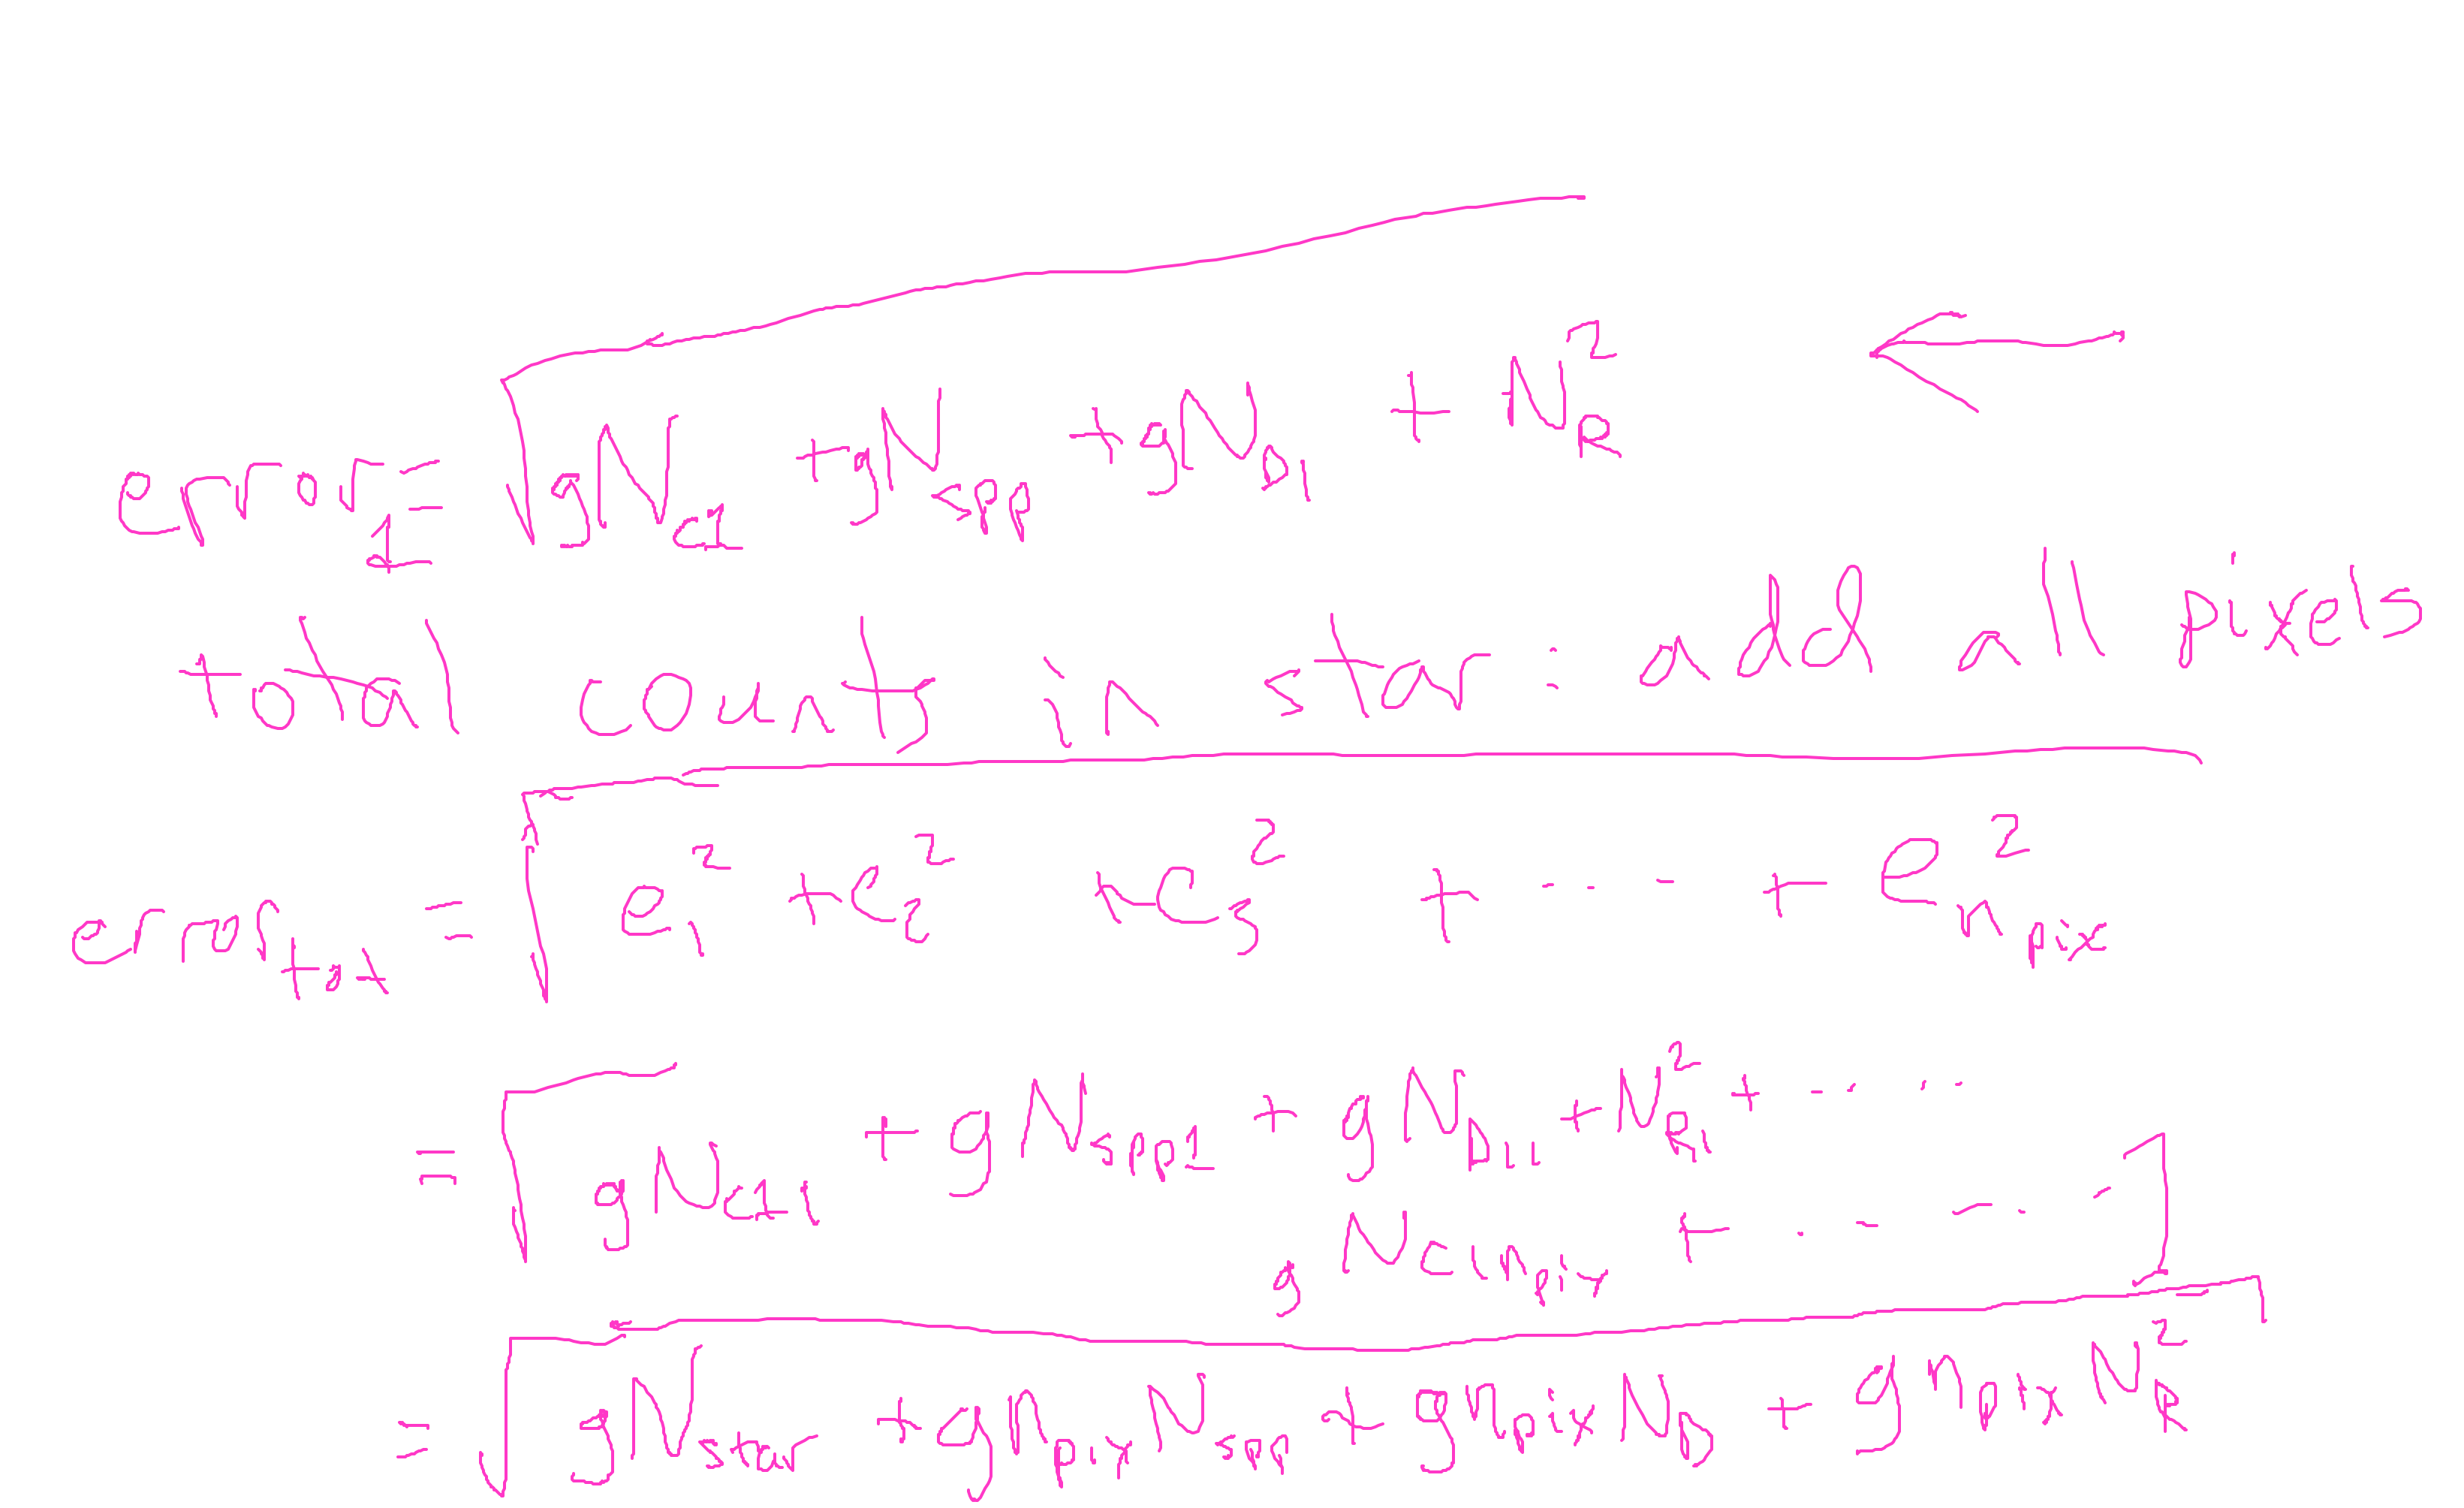 error_1 = √(gN_c1 + gN_sp + gN_D1 + N_R^2) ←
total counts in star : add all pixels
error_total = √(e_1^2 + e_2^2 + e_3^2 + ... + e_npix^2)
= √[gN_c1 + gN_sp1 + gN_D1 + N_R1^2 + ...
gN_c1npix + ...]
= √(gN_star + g npix N_sp + g npix N_D + g npix N_R^2)